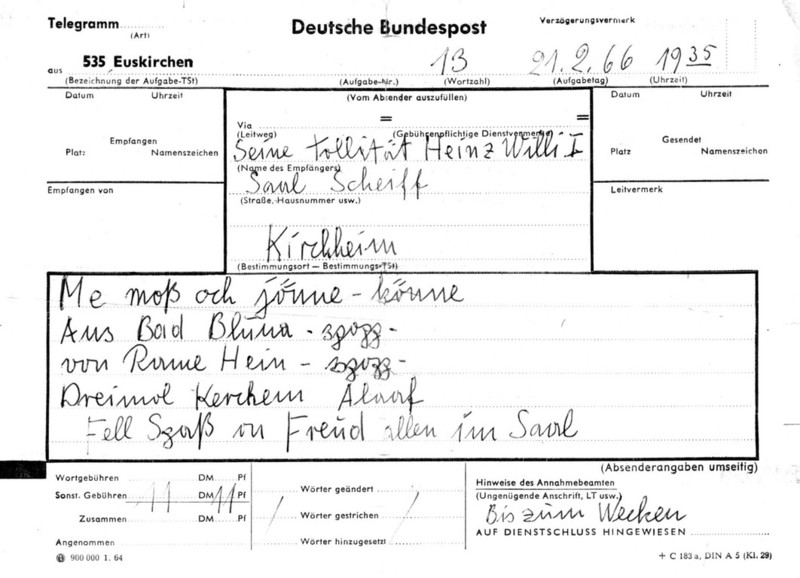 Telegramm
(Art)
Deutsche Bundespost
Verzögerungsvermerk
aus 535 Euskirchen 13 21.2.66 19 35
(Bezeichnung der Aufgabe-TSt) (Aufgabe-Nr.) (Wortzahl) (Aufgabetag) (Uhrzeit)
Datum Uhrzeit
Empfangen
Platz Namenszeichen
Empfangen von
(Vom Absender auszufüllen)
= =
Via
(Leitweg) (Gebührenpflichtige Dienstvermerke)
Seine Tollität Heinz Willi I
(Name des Empfängers)
Saal Scheiff
(Straße, Hausnummer usw.)
Kirchheim
(Bestimmungsort — Bestimmungs-TSt)
Datum Uhrzeit
Gesendet
Platz Namenszeichen
Leitvermerk
Me moß och jönne - könne
Aus Bad Bluna -
von Rame Hein -
Dreimol Kerchem Alaaf
Fell Spaß on Freud allen im Saal
(Absenderangaben umseitig)
Wortgebühren DM Pf
Sonst. Gebühren 11 DM 11 Pf
Zusammen DM Pf
Angenommen
900 000 1. 64
Wörter geändert
Wörter gestrichen
Wörter hinzugesetzt
Hinweise des Annahmebeamten
(Ungenügende Anschrift, LT usw.)
Bis zum Wecken
AUF DIENSTSCHLUSS HINGEWIESEN
+ C 183 a, DIN A 5 (Kl. 29)